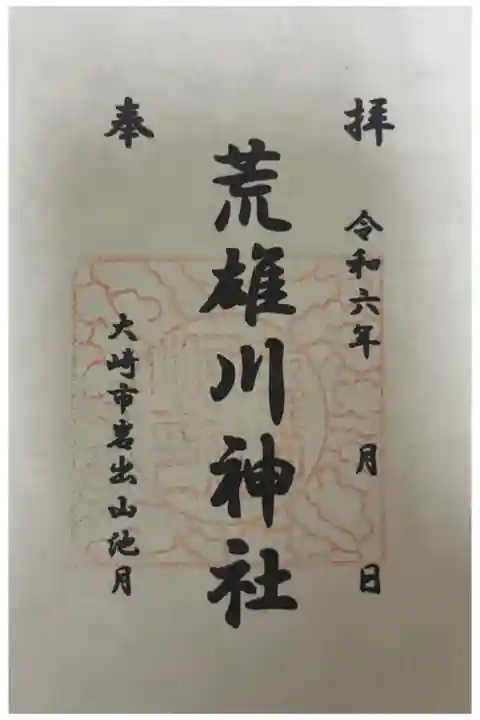 奉
拝
荒雄川神社
令和六年 月 日
大崎市岩出山池月